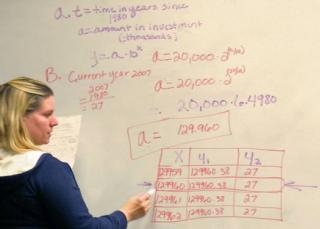 a. t = time in years since
1980
a = amount in investment
(thousands)
y = a · b^x
a = 20,000 · 2
B. Current year 2007
2007
- 1980
= 27
a = 20,000 · 2
20,000 · 6.4980
a = 129.960
X Y1 Y2
129959 129960.38 27
129960 129960.38 27
129961 129960.38 27
129962 129960.38 27